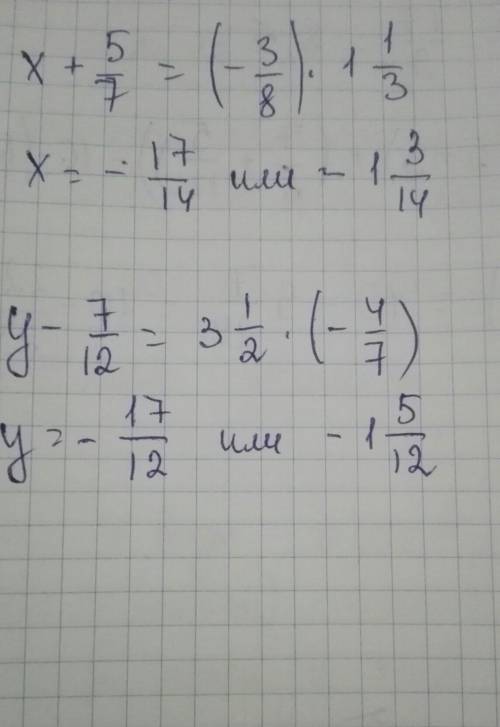 x + 5/7 = (- 3/8) · 1 1/3
x = - 17/14 или - 1 3/14
y - 7/12 = 3 1/2 · (- 4/7)
y = - 17/12 или - 1 5/12